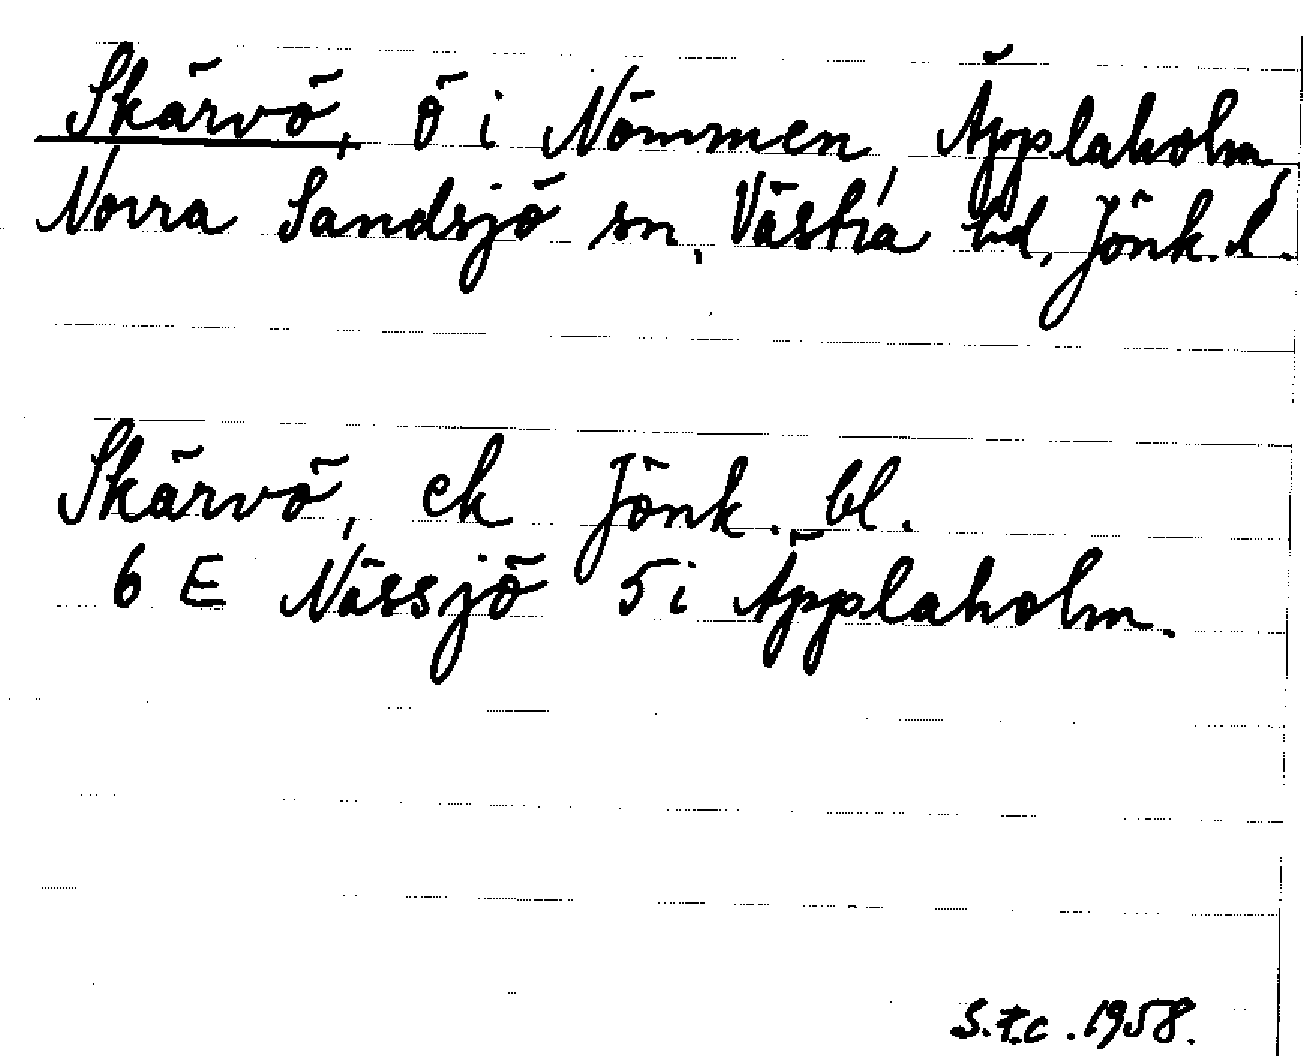 Skärvö, ö i Nömmen, Äpplaholm,
Norra Sandsjö sn, Västra hd, Jönk. l.
Skärvö, ek Jönk. bl.
6 E Nässjö 5 i Äpplaholm.
S.F.c. 1958.